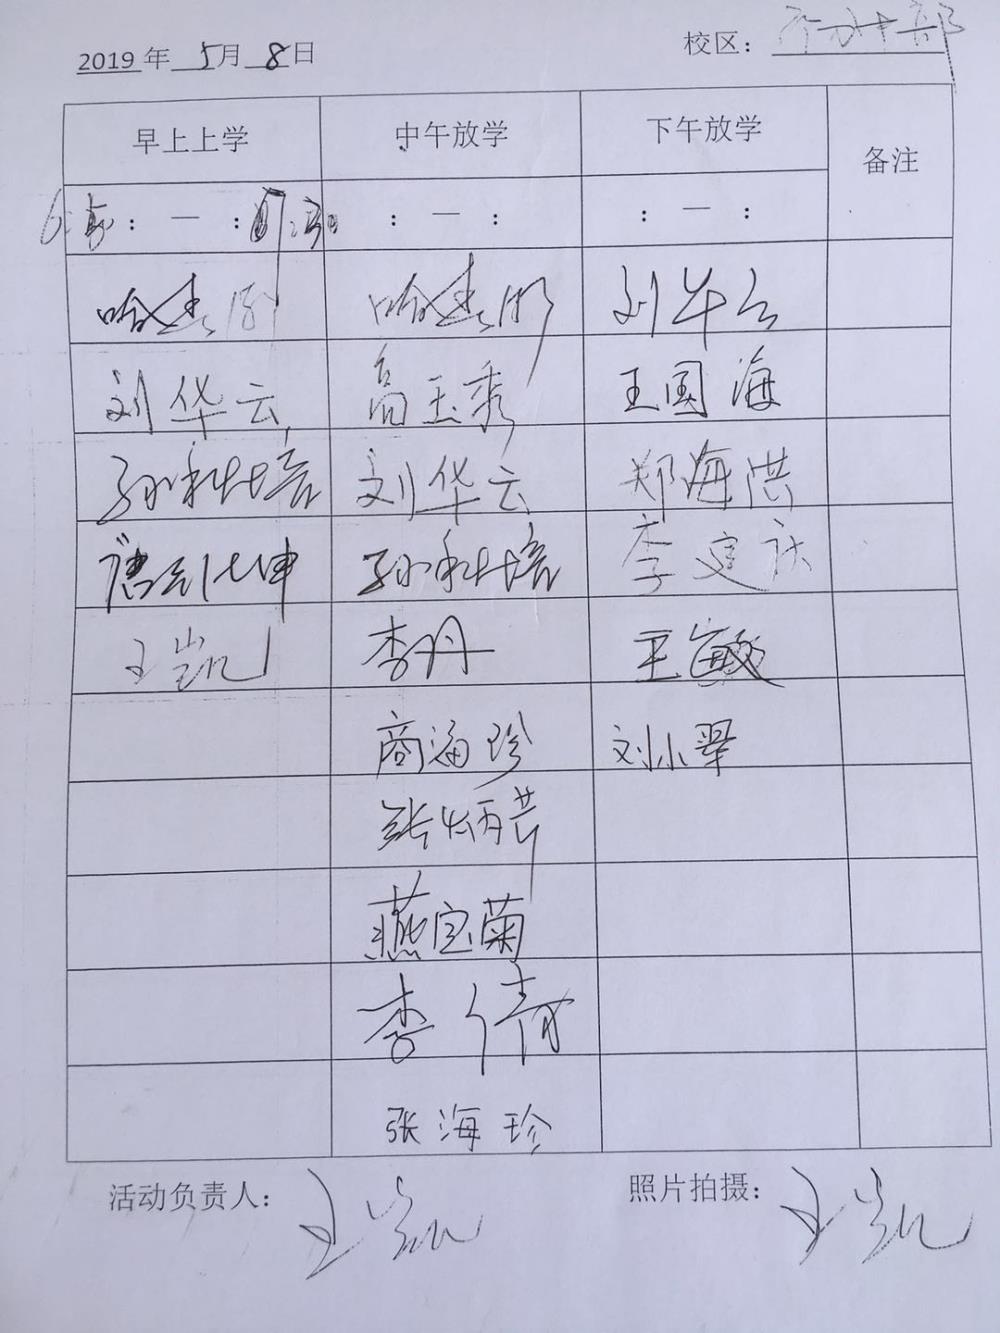 2019年 5月 8日 校区：
早上上学 中午放学 下午放学 备注
： — ： ： — ： ： — ：
哈 哈 刘华云
刘华云 高玉秀 王国海
孙科培 刘华云 郑海洪
孙科培 李建
王凯 李丹 王海敏
商海珍 刘小翠
张炳芹
燕宝菊
李倩
张海珍
活动负责人：王凯 照片拍摄：王凯